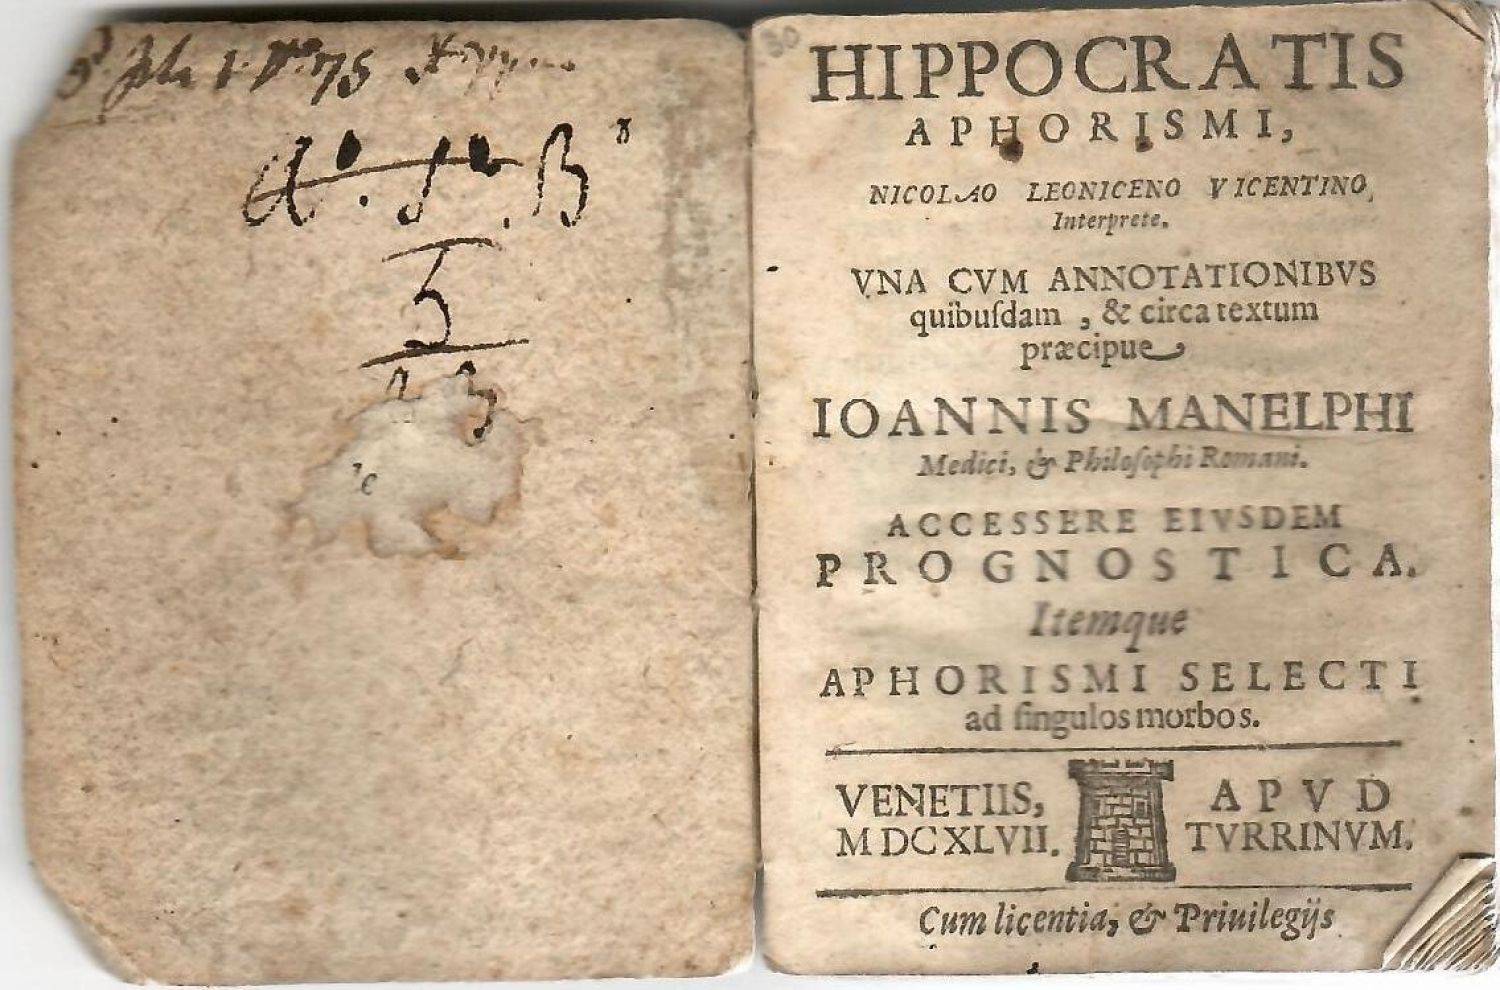 80
HIPPOCRATIS
APHORISMI,
NICOLAO LEONICENO VICENTINO,
Interprete.
VNA CVM ANNOTATIONIBVS
quibuſdam , & circa textum
præcipue
IOANNIS MANELPHI
Medici, & Philoſophi Romani.
ACCESSERE EIVSDEM
PROGNOSTICA.
Itemque
APHORISMI SELECTI
ad ſingulos morbos.
VENETIIS, APVD
MDCXLVII. TVRRINVM.
Cum licentia, & Priuilegijs